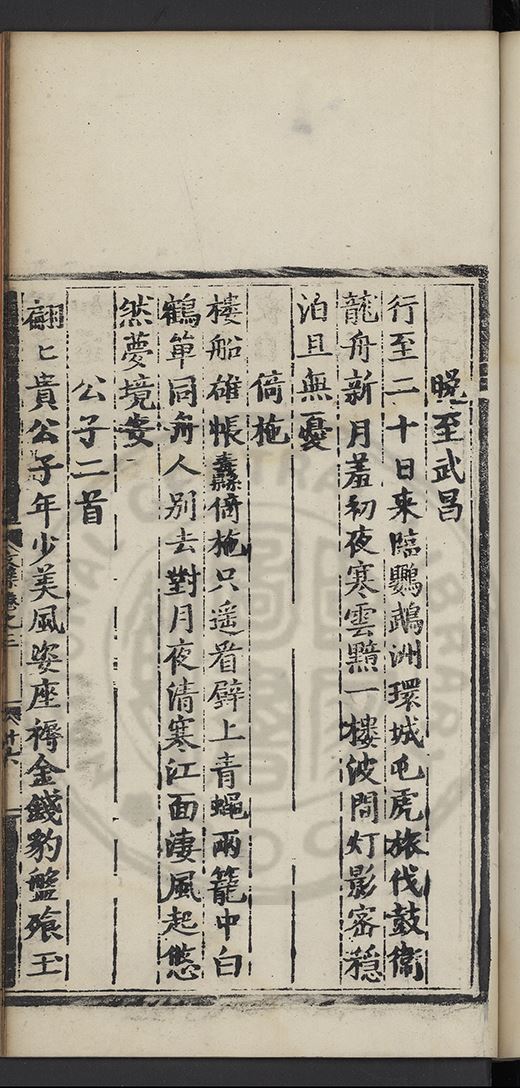 晚至武昌
行至二十日来臨鸚鵡洲環城屯虎旅伐鼓衛
龍舟新月羞初夜寒雲黯一樓波間灯影密穩
泊且無憂
倚柂
樓船雄帳纛倚柂只遥看壁上青蠅兩籠中白
鶴單同舟人别去對月夜清寒江面淒風起悠
然夢境安
公子二首
翩〻貴公子年少美風姿座褥金錢豹盤飱玉
卷之三